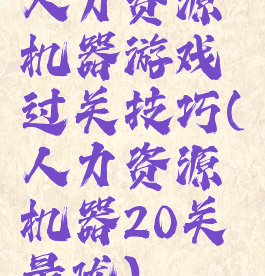 人力资源
机器游戏
过关技巧(
人力资源
机器20关
最优)